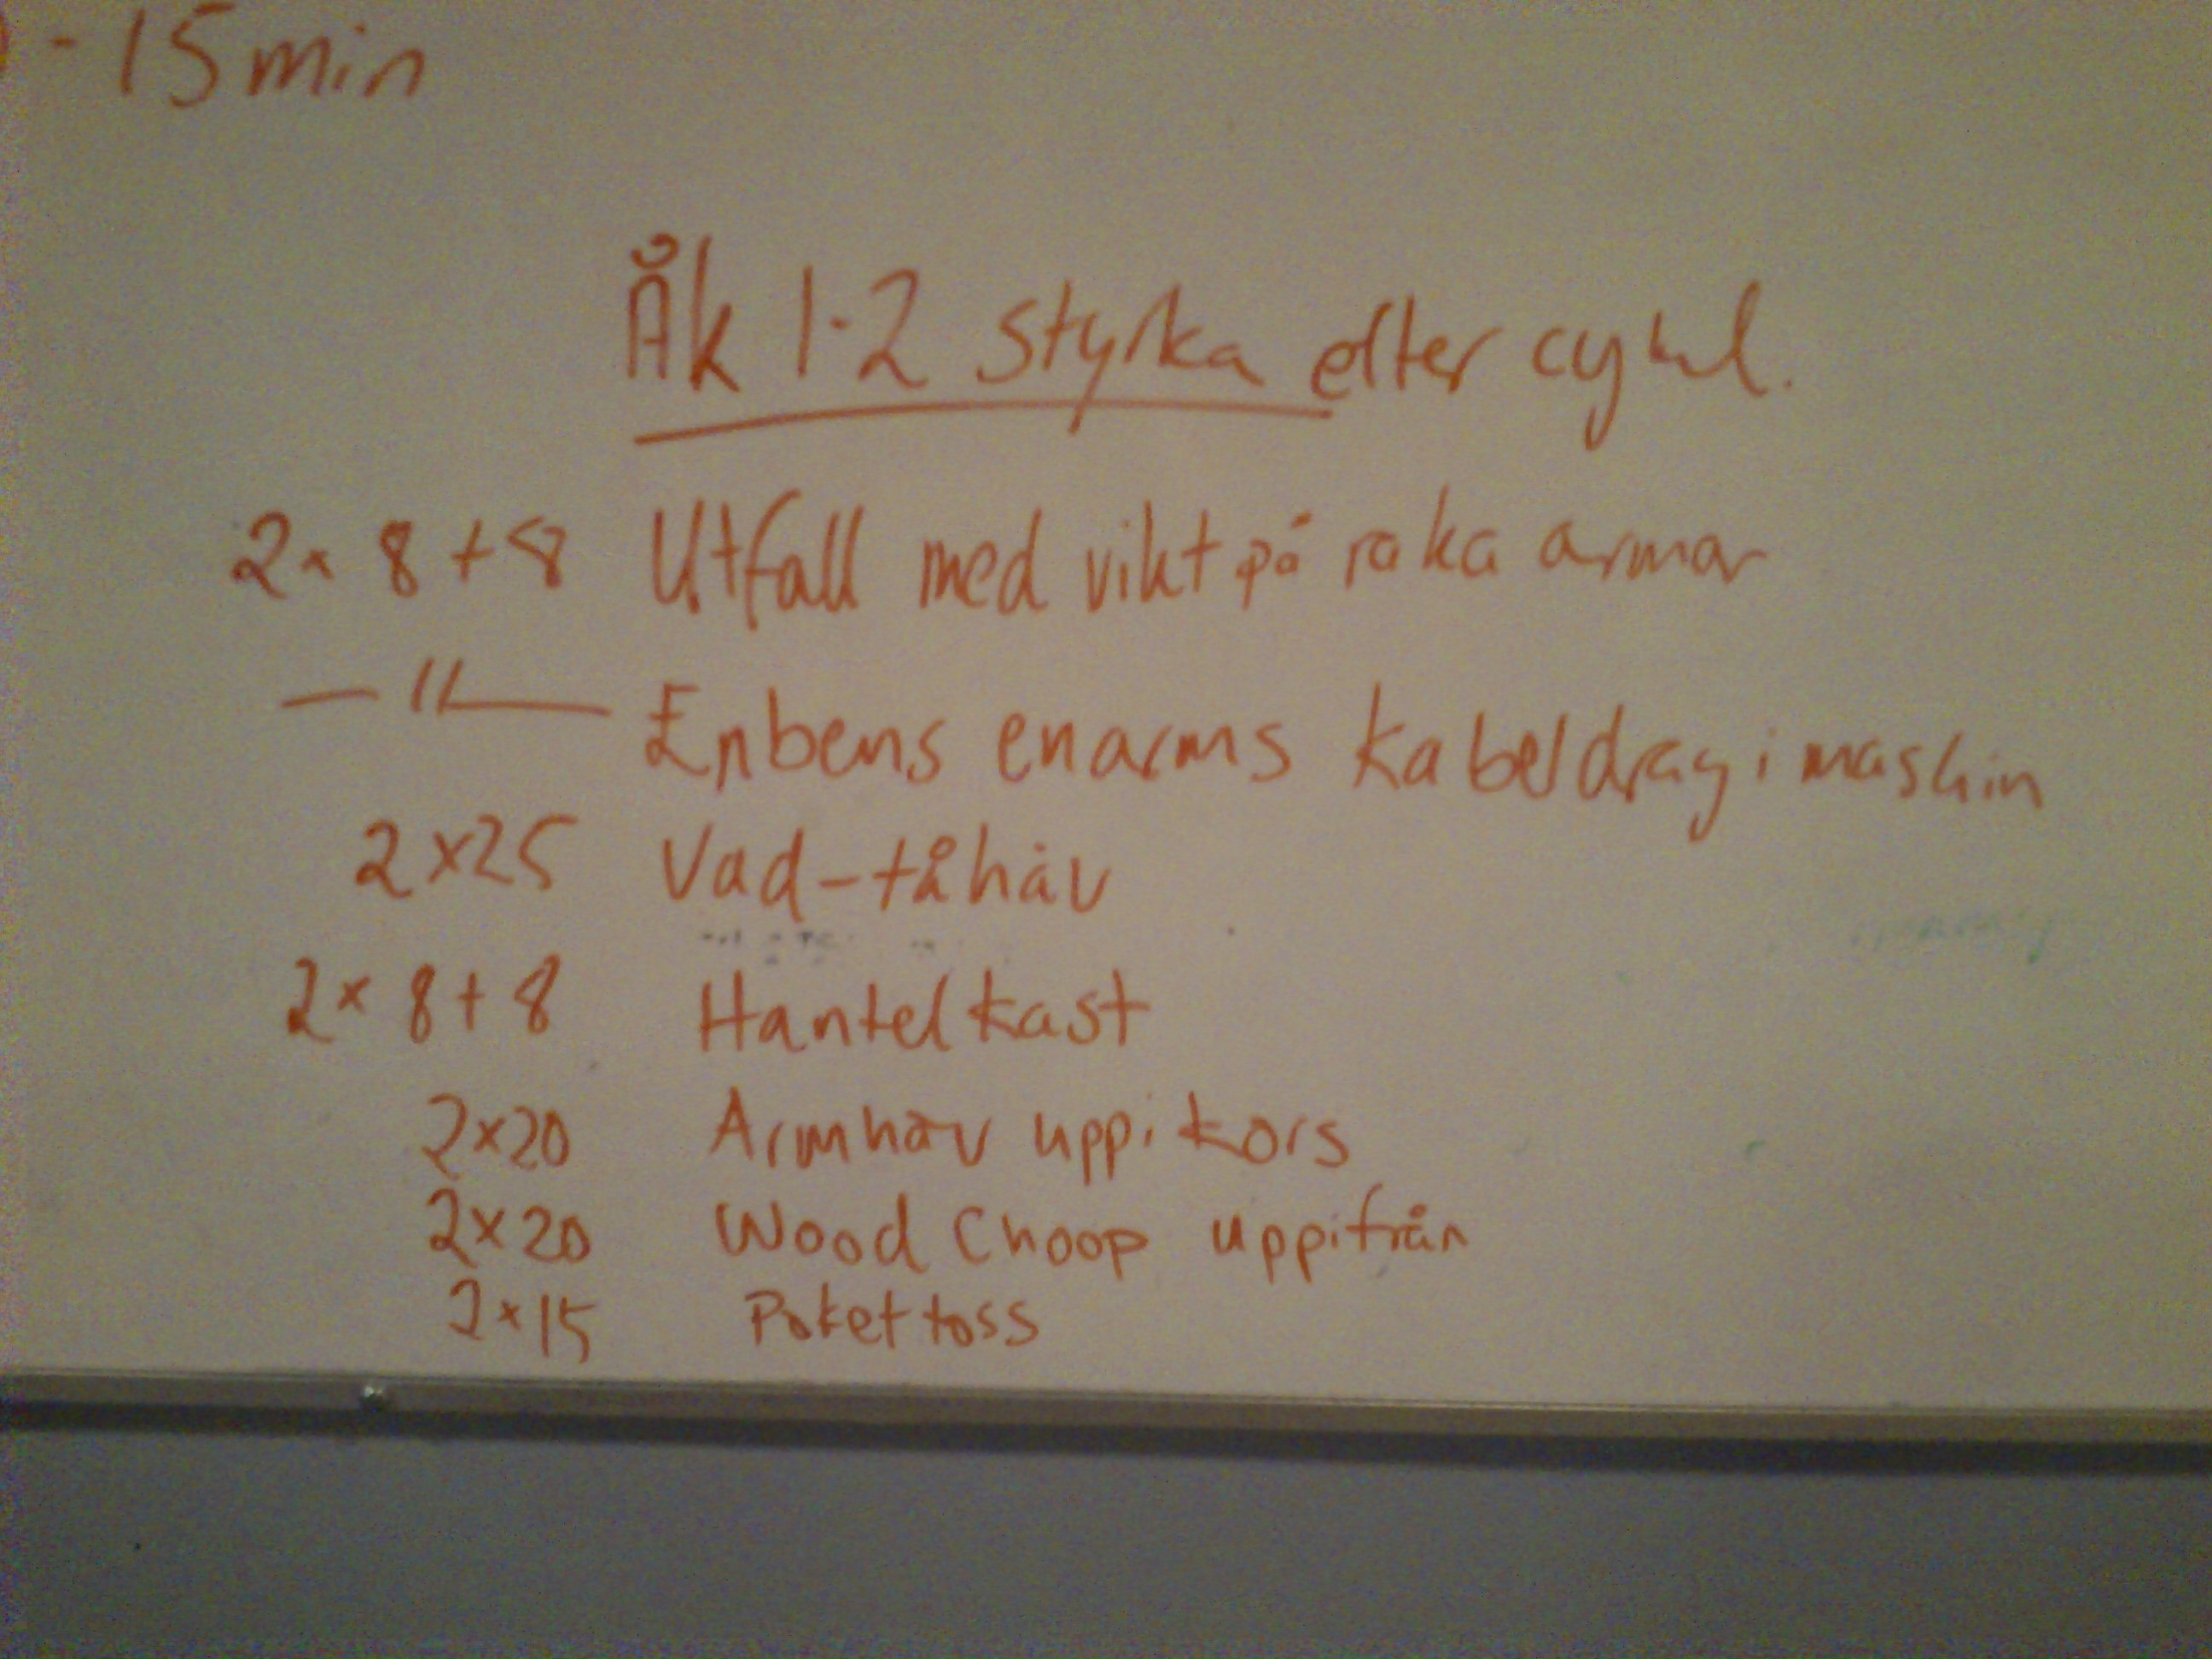 - 15 min
Åk 1-2 styrka efter cykel.
2x 8+8 Utfall med vikt på raka armar
—11— Enbens enarms kabeldrag i maskin
2x25 Vad-tåhäv
2x 8+8 Hantelkast
2x20 Armhäv uppi kors
2x20 Wood Choop uppifrån
2x15 Pakettoss